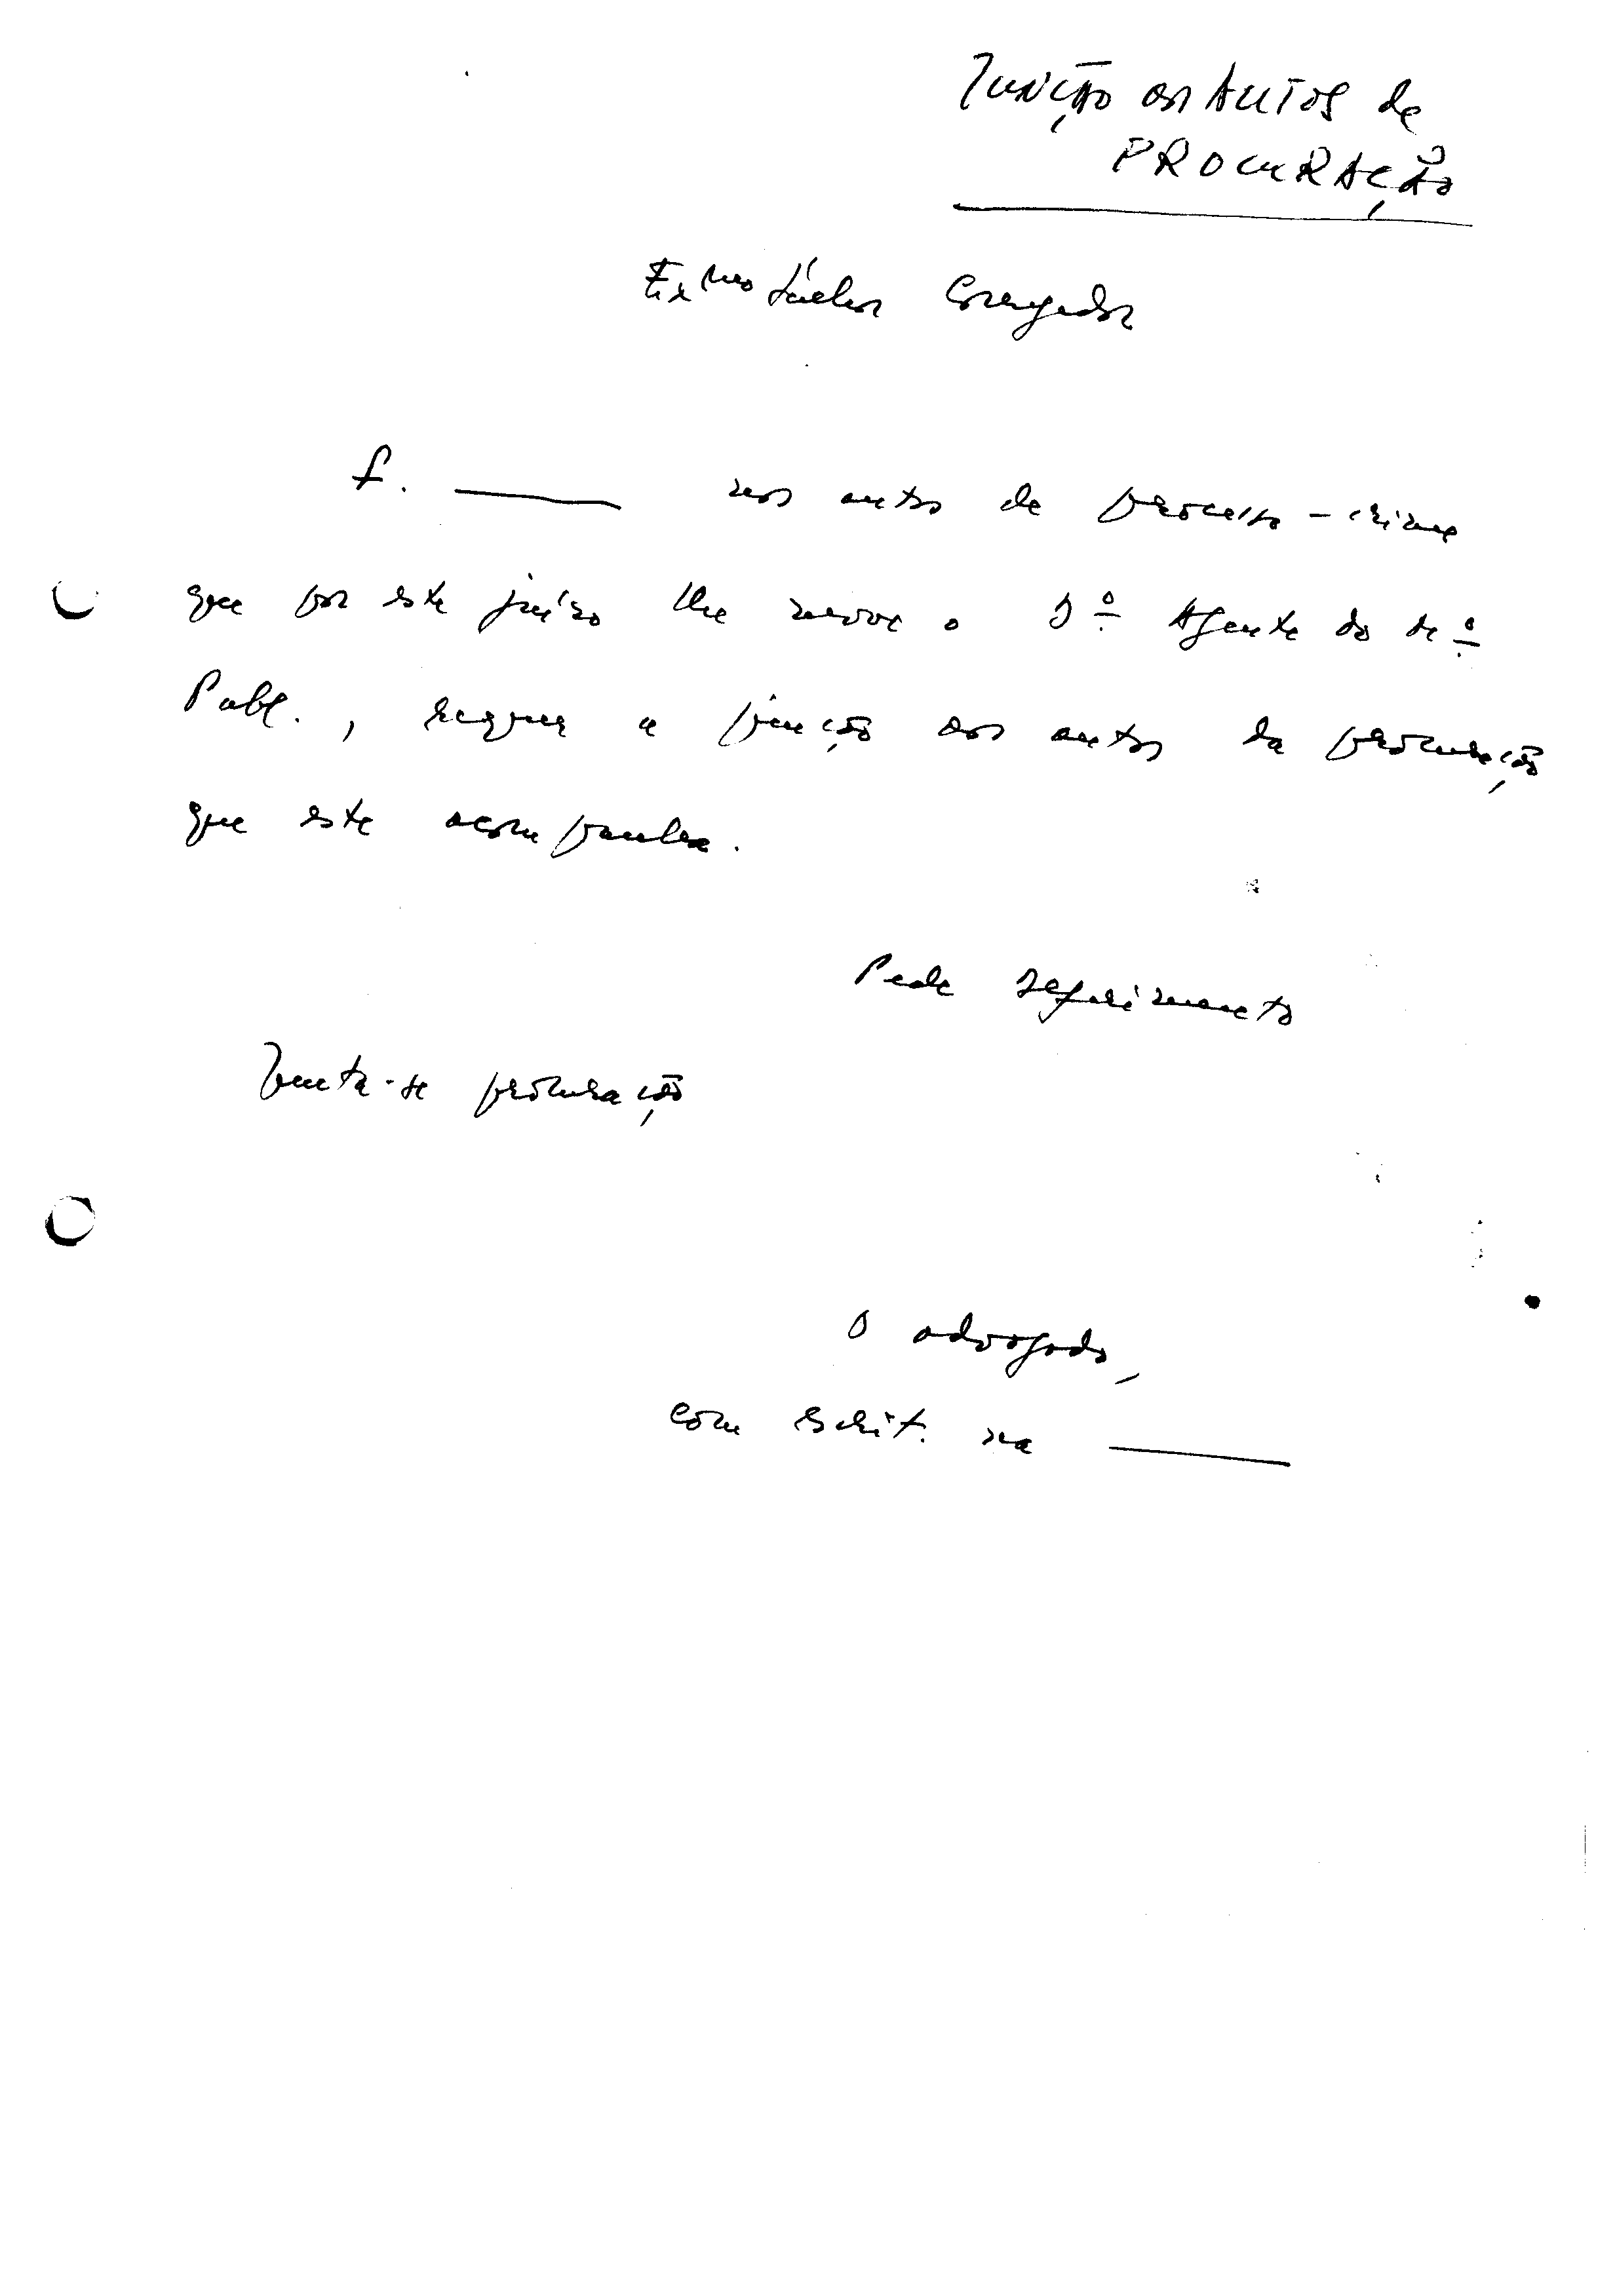 JUNÇÃO aos AUTOS de
PROCURAÇÃO
Exmo Senhor Corregedor
F. ______ nos autos de processo-crime
que por este juízo lhe move o Dº Agente do Mº
Publ., requer a junção aos autos da procuração
que este acompanha.
Pede deferimento
Junta-se procuração
O advogado,
com escrit. na ______